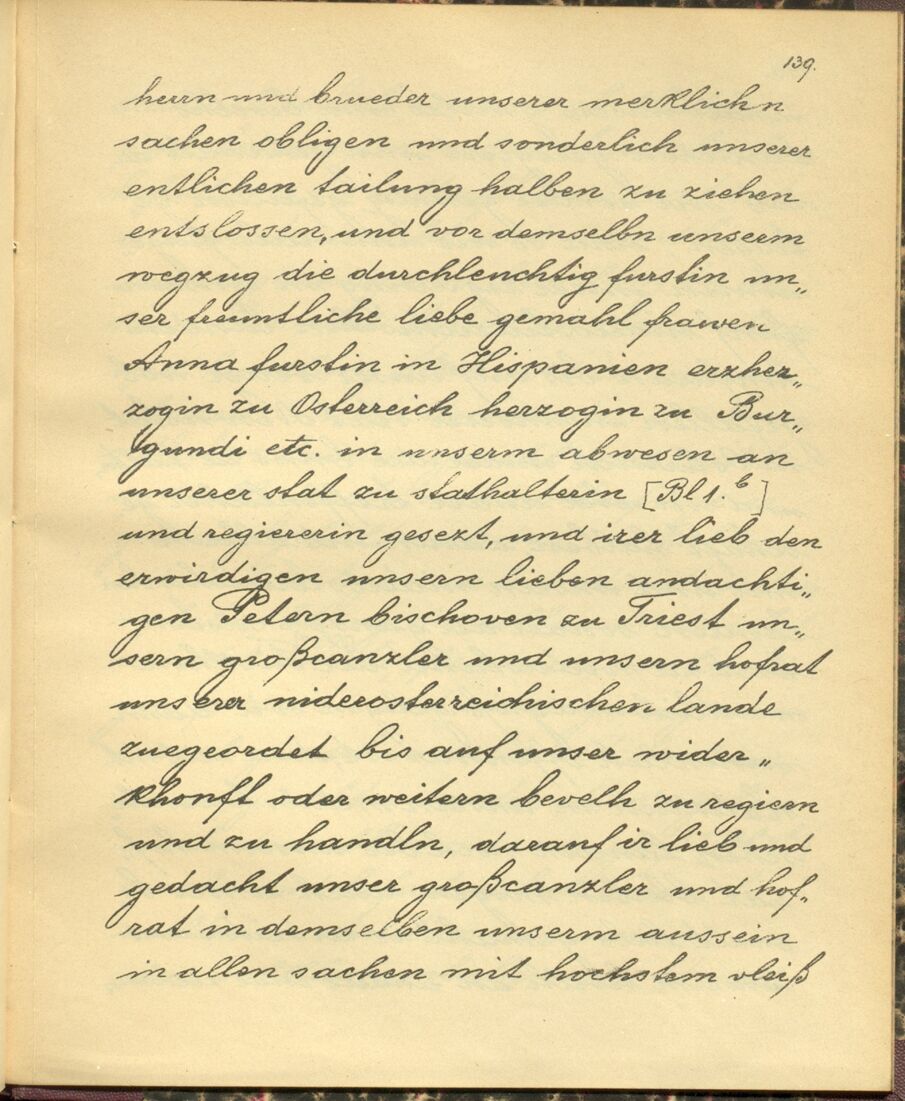 139.
herrn und brueder unserer merklichn
sachen obligen und sonderlich unserer
entlichen tailung halben zu ziehen
entslossen, und vor demselbn unserm
wegzug die durchleuchtig furstin un„
ser freuntliche liebe gemahl frawen
Anna furstin in Hispanien erzher„
zogin zu Osterreich herzogin zu Bur„
gundi etc. in unserm abwesen an
unserer stat zu stathalterin [Bl 1.b]
und regiererin gesezt, und irer lieb den
erwirdigen unsern lieben andachti„
gen Petern bischoven zu Triest un„
sern großcanzler und unsern hofrat
unserer niderosterreichischen lande
zuegeordet bis auf unser wider„
khonft oder weitern bevelh zu regiern
und zu handln, darauf ir lieb und
gedacht unser großcanzler und hof„
rat in demselben unserm aussein
in allen sachen mit hochstem vleiß